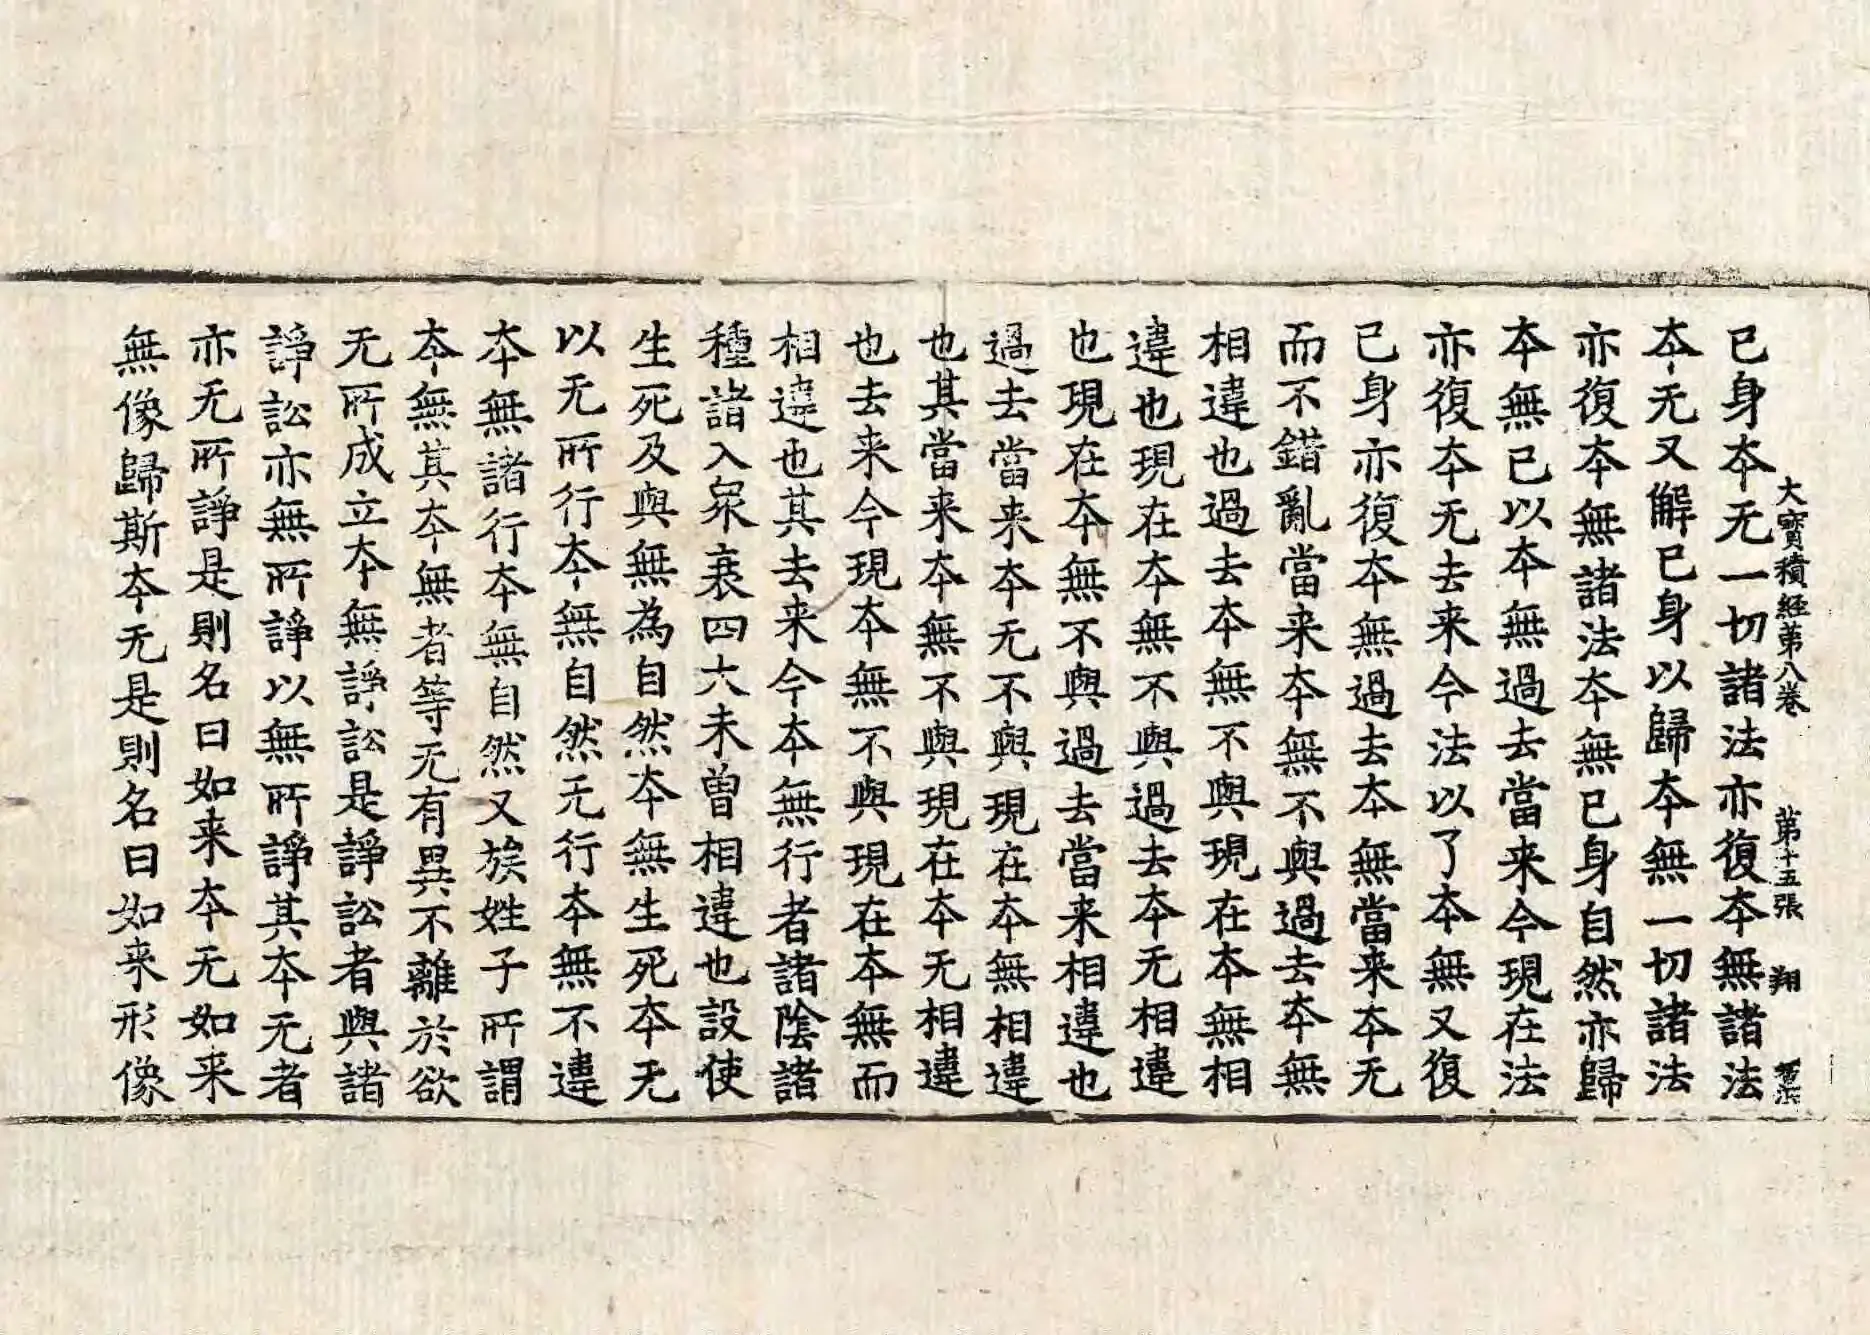 大寶積経苐八卷 苐十五張 翔
已身夲无一切諸法亦復夲無諸法
夲无又解已身以歸夲無一切諸法
亦復夲無諸法夲無已身自然亦歸
夲無已以夲無過去當来今現在法
亦復夲无去来今法以了夲無又復
已身亦復夲無過去夲無當来夲无
而不錯亂當来夲無不與過去夲無
相違也過去夲無不與現在夲無相
違也現在夲無不與過去夲无相違
也現在夲無不與過去當来相違也
過去當来夲无不與現在夲無相違
也其當来夲無不與現在夲无相違
也去来今現夲無不與現在夲無而
相違也其去来今夲無行者諸陰諸
種諸入衆衰四大未曽相違也設使
生死及與無為自然夲無生死夲无
以无所行夲無自然无行夲無不違
夲無諸行夲無自然又族姓子所謂
夲無其夲無者等无有異不離於欲
无所成立夲無諍訟是諍訟者與諸
諍訟亦無所諍以無所諍其夲无者
亦无所諍是則名曰如来夲无如来
無像歸斯夲无是則名曰如来形像